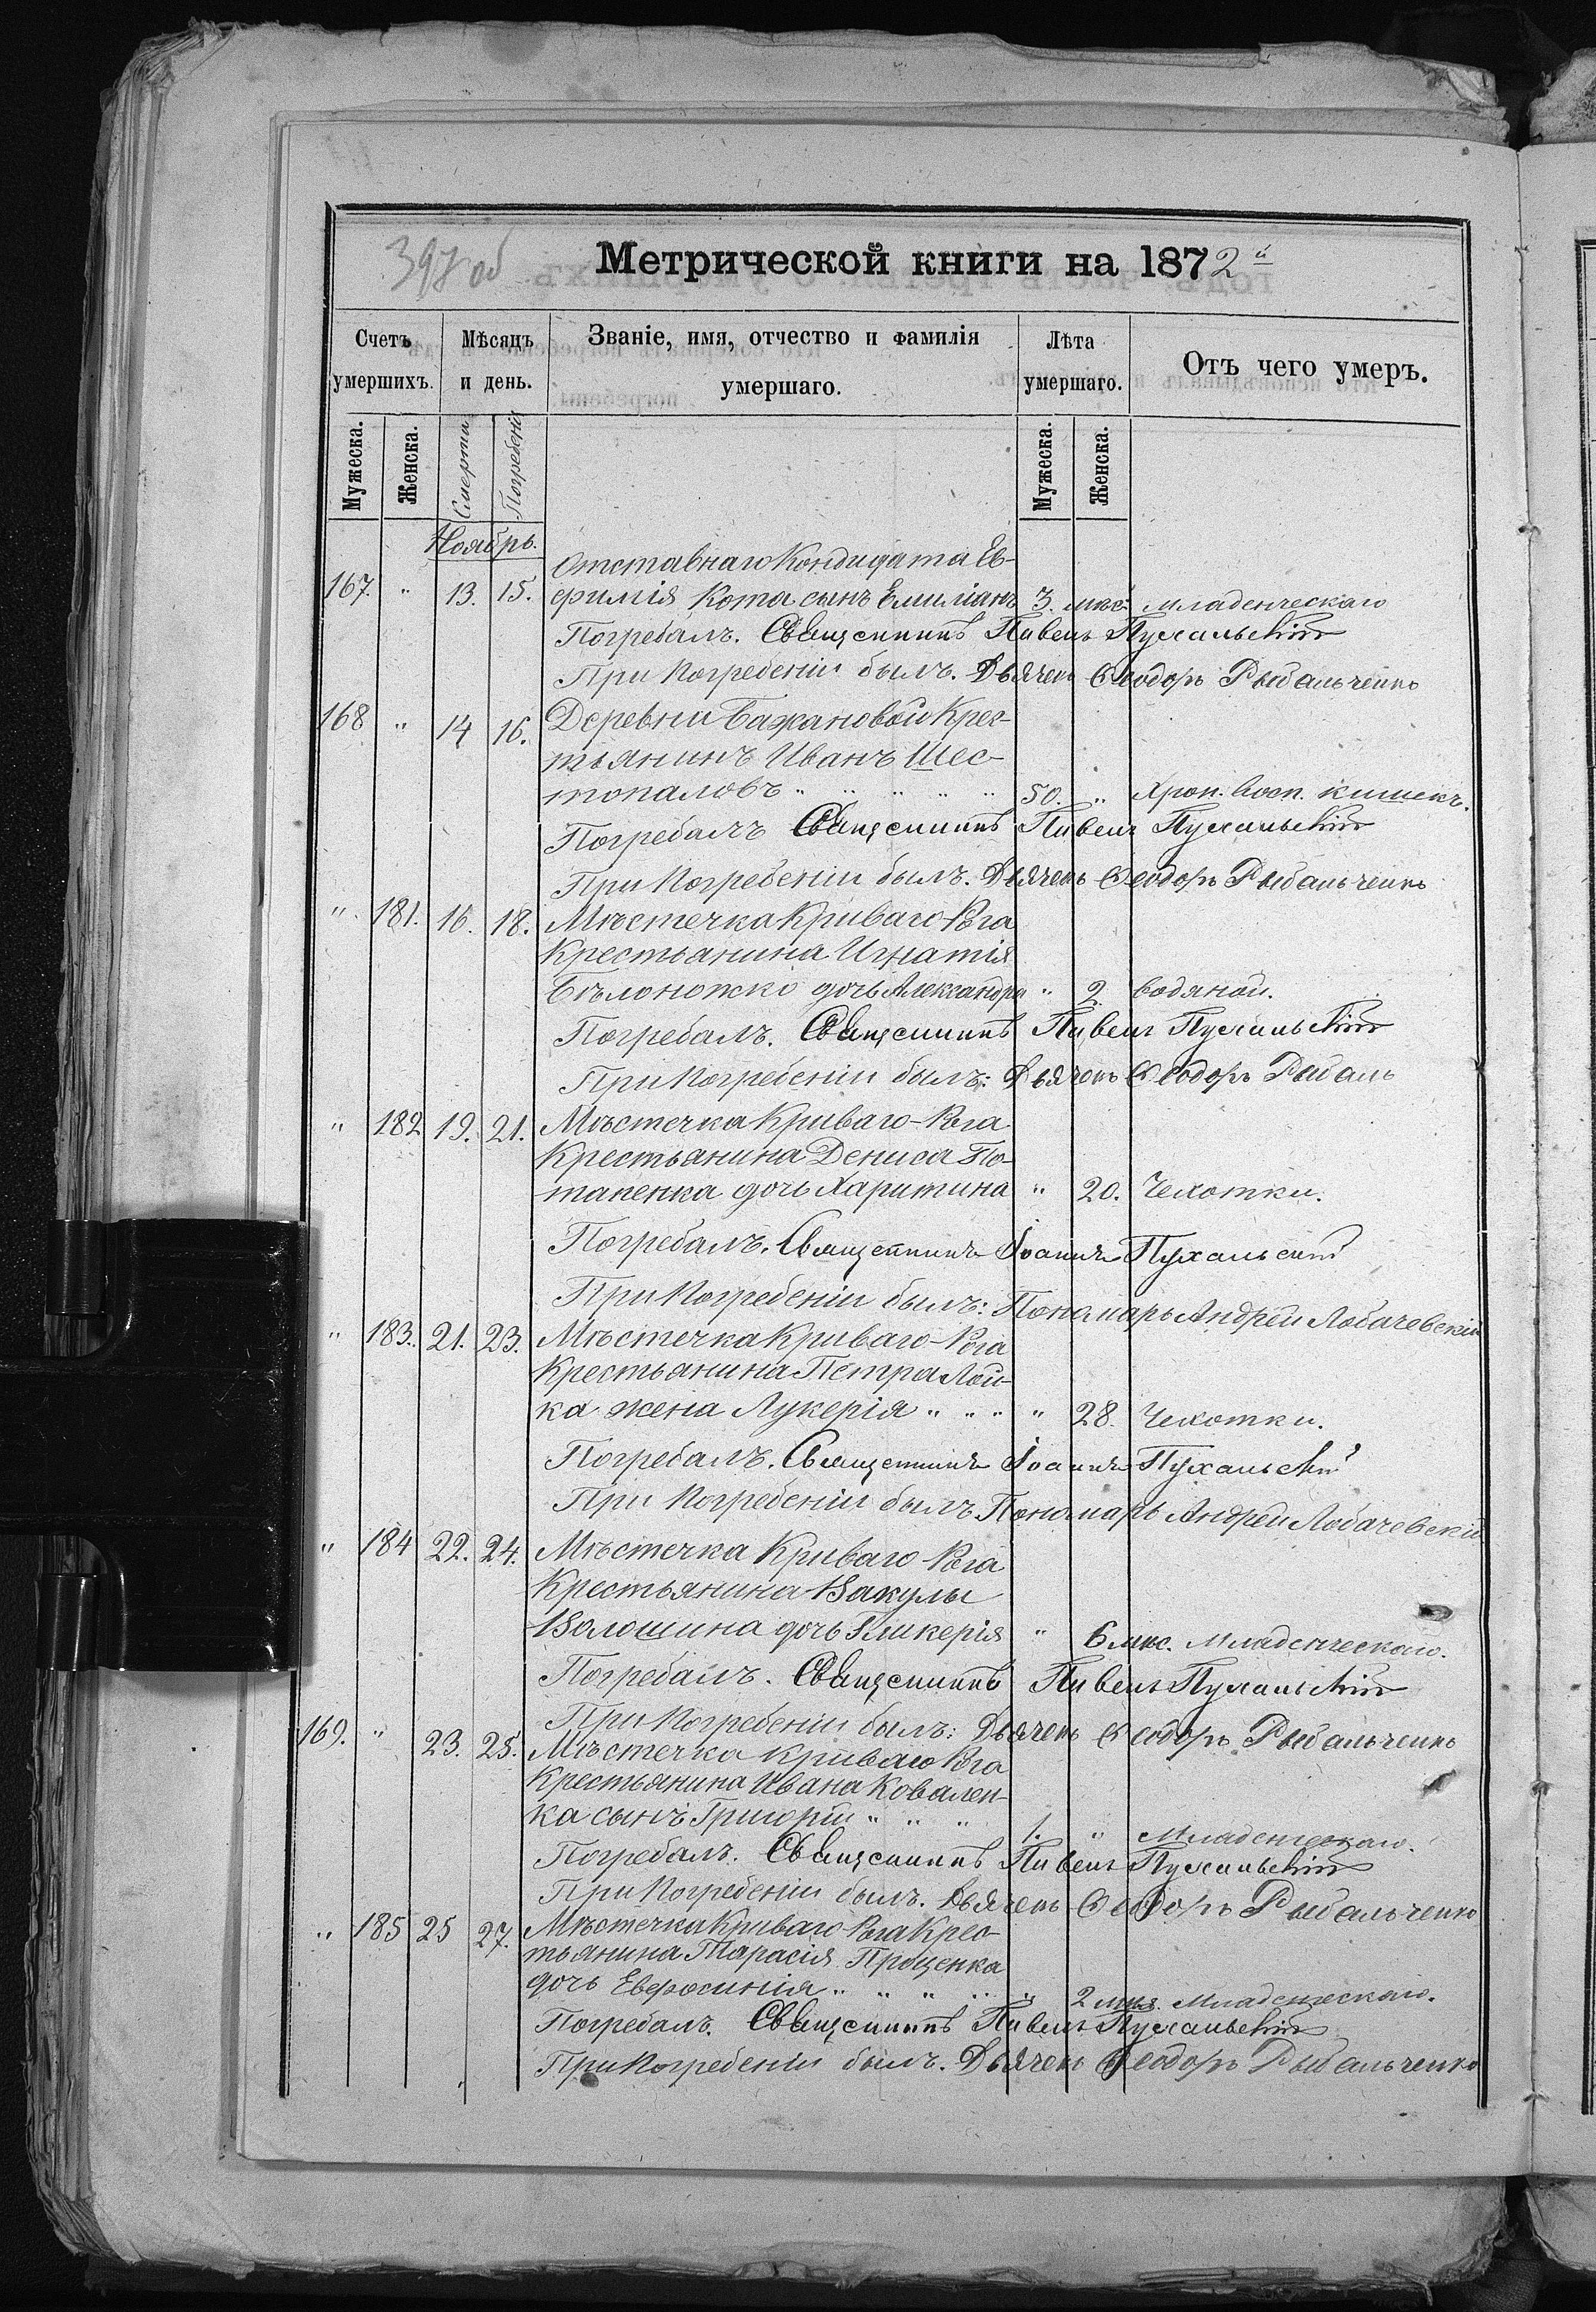 397 об
Метрической книги на 1872й
Счетъ умершихъ. Мѣсяцъ и день. Званіе, имя, отчество и фамилія умершаго. Лѣта умершаго. Отъ чего умеръ.
Мужеска. Женска. Смерти Погребенія Мужеска. Женска.
Ноябрь.
Отставнаго Кондидата Ев-
167. " 13. 15. фимія Кота сынъ Емиліанъ 3. мѣс. младенческаго
Погребалъ. Священникъ Павелъ Пухальскій
При погребеніи былъ. Дьячекъ Ѳеодоръ Рыбальченко
168 " 14 16. Деревни Бажановой Крес-
тьянинъ Иванъ Шес-
топаловъ " " " " " 50. " Хрон. восп. кишекъ.
Погребалъ Священникъ Павелъ Пухальскій
При погребеніи былъ. Дьячекъ Ѳеодоръ Рыбальченко
". 181. 16. 18. Мѣстечка Криваго-Рога
Крестьянина Игнатія
Бѣлоножко дочь Александра " 2. водяной.
Погребалъ. Священникъ Павелъ Пухальскій
При погребеніи былъ: Дьячекъ Ѳеодоръ Рыбаль
" 182 19. 21. Мѣстечка Криваго-Рога
Крестьянина Дениса По-
тапенка дочь Харитина " 20. Чехотки.
Погребалъ. Священникъ Іоаннъ Пухальскій
При погребеніи былъ: Пономарь Андрей Лобачевскій
" 183. 21. 23. Мѣстечка Криваго-Рога
Крестьянина Петра Лой-
ка жена Лукерія " " " " 28. Чехотки.
Погребалъ. Священникъ Іоаннъ Пухальскій
При погребеніи былъ Пономарь Андрей Лобачевскій
" 184 22. 24. Мѣстечка Криваго Рога
Крестьянина Вакулы
Волошина дочь Гликерія " 6 мѣс. Младенческаго.
Погребалъ. Священникъ Павелъ Пухальскій
При погребеніи былъ: Дьячекъ Ѳеодоръ Рыбальченко
169. " 23. 25. Мѣстечка Криваго Рога
Крестьянина Ивана Ковален-
ка сынъ Григорій " " " 1. " Младенческаго.
Погребалъ. Священникъ Павелъ Пухальскій
При погребеніи былъ. Дьячекъ Ѳеодоръ Рыбальченко
" 185 25 27. Мѣстечка Криваго Рога Крес-
тьянина Тарасія Проценка
дочь Евфросинія " " " " " 2 мѣс. Младенческаго.
Погребалъ. Священникъ Павелъ Пухальскій
При погребеніи былъ. Дьячекъ Ѳеодоръ Рыбальченко